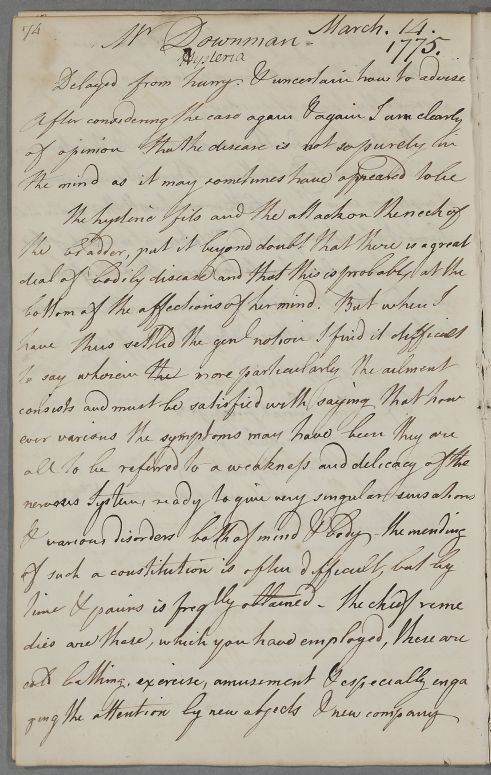 74
Mr Downman - March. 14.
1775.
Hysteria
Delayed from hurry & uncertain how to advise
After considering the case again & again I am clearly
of opinion that the disease is not so purely in
the mind as it may sometimes have appeared to be
the hysteric fits and the attack on the neck of
the bladder, put it beyond doubt that there is a great
deal of bodily disease and that this is probably at the
bottom of the affections of her mind. But when I
have thus settled the genl notion I find it difficult
to say wherein the more particularly the ailment
consists and must be satisfied with saying that how
ever various the symptoms may have been they are
all to be referred to a weakness and delicacy of the
nervous System, ready to give very singular sensations
& various disorders both of mind & body - the mending
of such a constitution is often difficult, but by
time & pains is freqtly obtained - The chief reme
dies are these, which you have employed, these are
cold bathing, exercise, amusement & especially enga
ging the attention by new objects & new company